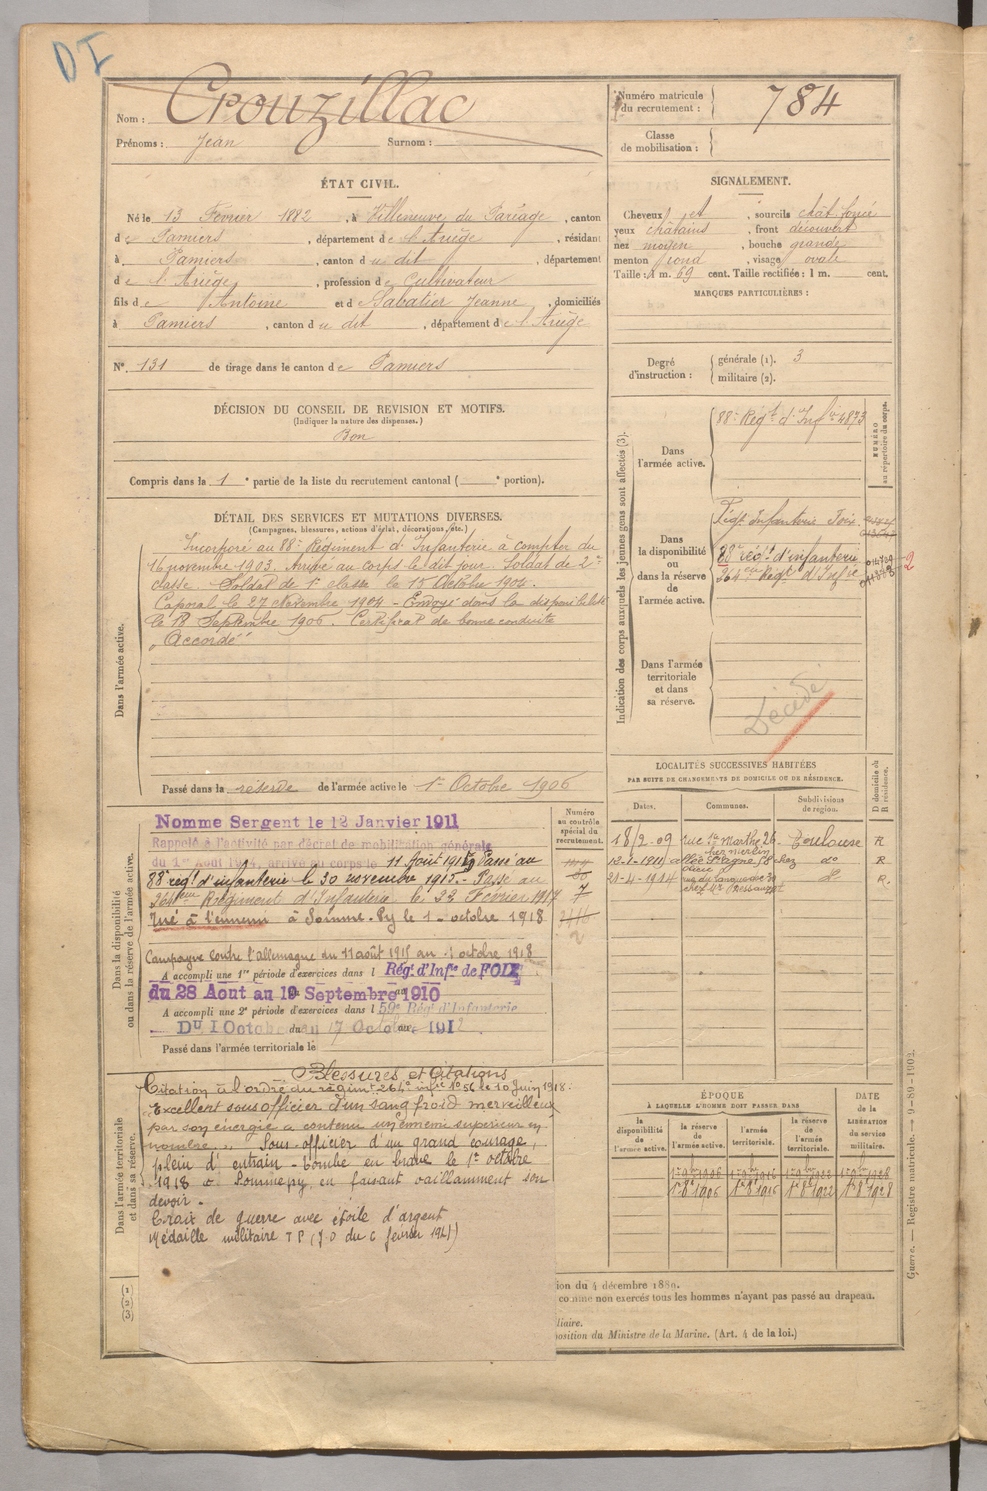 DI
Nom : Crouzillac
Prénoms : Jean Surnom :
Numéro matricule du recrutement : 784
Classe de mobilisation :
ÉTAT CIVIL.
Né le 13 Février 1882, à Villeneuve du Paréage, canton
de Pamiers, département de l'Ariège, résidant
à Pamiers, canton du dit, département
de l'Ariège, profession de Cultivateur
fils de Antoine et de Sabatier Jeanne, domiciliés
à Pamiers, canton du dit, département de l'Ariège
N° 131 de tirage dans le canton de Pamiers
SIGNALEMENT.
Cheveux et, sourcils chât. foncé
yeux châtains, front découvert
nez moyen, bouche grande
menton rond, visage ovale
Taille : 1 m. 69 cent. Taille rectifiée : 1 m. cent.
MARQUES PARTICULIÈRES :
Degré d'instruction : générale (1). 3
militaire (2).
DÉCISION DU CONSEIL DE REVISION ET MOTIFS.
(Indiquer la nature des dispenses.)
Bon
Compris dans la 1e partie de la liste du recrutement cantonal ( e portion).
DÉTAIL DES SERVICES ET MUTATIONS DIVERSES.
(Campagnes, blessures, actions d'éclat, décorations, etc.)
Dans l'armée active.
Incorporé au 88e Régiment d'Infanterie à compter du
16 novembre 1903. Arrivé au corps le dit jour. Soldat de 2e
classe. Soldat de 1e classe le 15 Octobre 1904.
Caporal le 27 Novembre 1904 - Envoyé dans la disponibilité
le 18 Septembre 1906. Certificat de bonne conduite
"Accordé"
Passé dans la réserve de l'armée active le 1er Octobre 1906
Indication des corps auxquels les jeunes gens sont affectés (3).
NUMÉRO au répertoire du corps.
Dans l'armée active.
88e Régt d'Infie 4873
Dans la disponibilité ou dans la réserve de l'armée active.
Régt Infanterie Foix
88e régt d'infanterie
264eme Régt d'Infie
2
Dans l'armée territoriale et dans sa réserve.
Décédé
LOCALITÉS SUCCESSIVES HABITÉES
PAR SUITE DE CHANGEMENTS DE DOMICILE OU DE RÉSIDENCE.
Dates. Communes. Subdivisions de région. D domicile ou R résidence.
18/2-09 rue Ste Marthe 26 Toulouse R
chez do R
21-4-1914 R.
Dans la disponibilité ou dans la réserve de l'armée active.
Numéro au contrôle spécial du recrutement.
Nomme Sergent le 12 Janvier 1911
Rappelé à l'activité par décret de mobilisation générale
du 1er Août 1914, arrivé au corps le 11 Août 1915 Passé au
88e régt d'infanterie le 30 novembre 1915.- Passé au
264eme Régiment d'Infanterie le 23 Février 1917 7
Tué à l'ennemi à Somme-Py le 1er octobre 1918
2
Campagne contre l'allemagne du 11 août 1915 au 1 octobre 1918
A accompli une 1re période d'exercices dans l Régt d'Infie de FOIX
du 28 Aout au 19 Septembre 1910
A accompli une 2e période d'exercices dans l 59e Régt d'Infanterie
Du 1 Octobre au 17 Octobre 1912
Passé dans l'armée territoriale le
Dans l'armée territoriale et dans sa réserve.
Blessures et Citations
Citation à l'ordre du régimt 264e infie No 56 le 10 Juin 1918.
"Excellent sous officier d'un sang froid merveilleux
par son énergie a contenu un ennemi supérieur en
nombre." Sous-officier d'un grand courage,
plein d'entrain - tombé en brave le 1er octobre
1918 à Sommepy, en faisant vaillamment son
devoir.
Croix de guerre avec étoile d'argent
Médaille militaire T P (J O du 6 février 1921)
ÉPOQUE
À LAQUELLE L'HOMME DOIT PASSER DANS
la disponibilité de l'armée active. la réserve de l'armée active. l'armée territoriale. la réserve de l'armée territoriale.
DATE de la LIBÉRATION du service militaire.
1er 9bre 1906 1er 9bre 1916 1er 9bre 1922 1er 9bre 1928
1er 8bre 1906 1er 8bre 1916 1er 8bre 1922 1er 8bre 1928
(1)
(2)
(3)
ion du 4 décembre 1889.
comme non exercés tous les hommes n'ayant pas passé au drapeau.
liaire.
position du Ministre de la Marine. (Art. 4 de la loi.)
Guerre. — Registre matricule. — 9-89-1902.